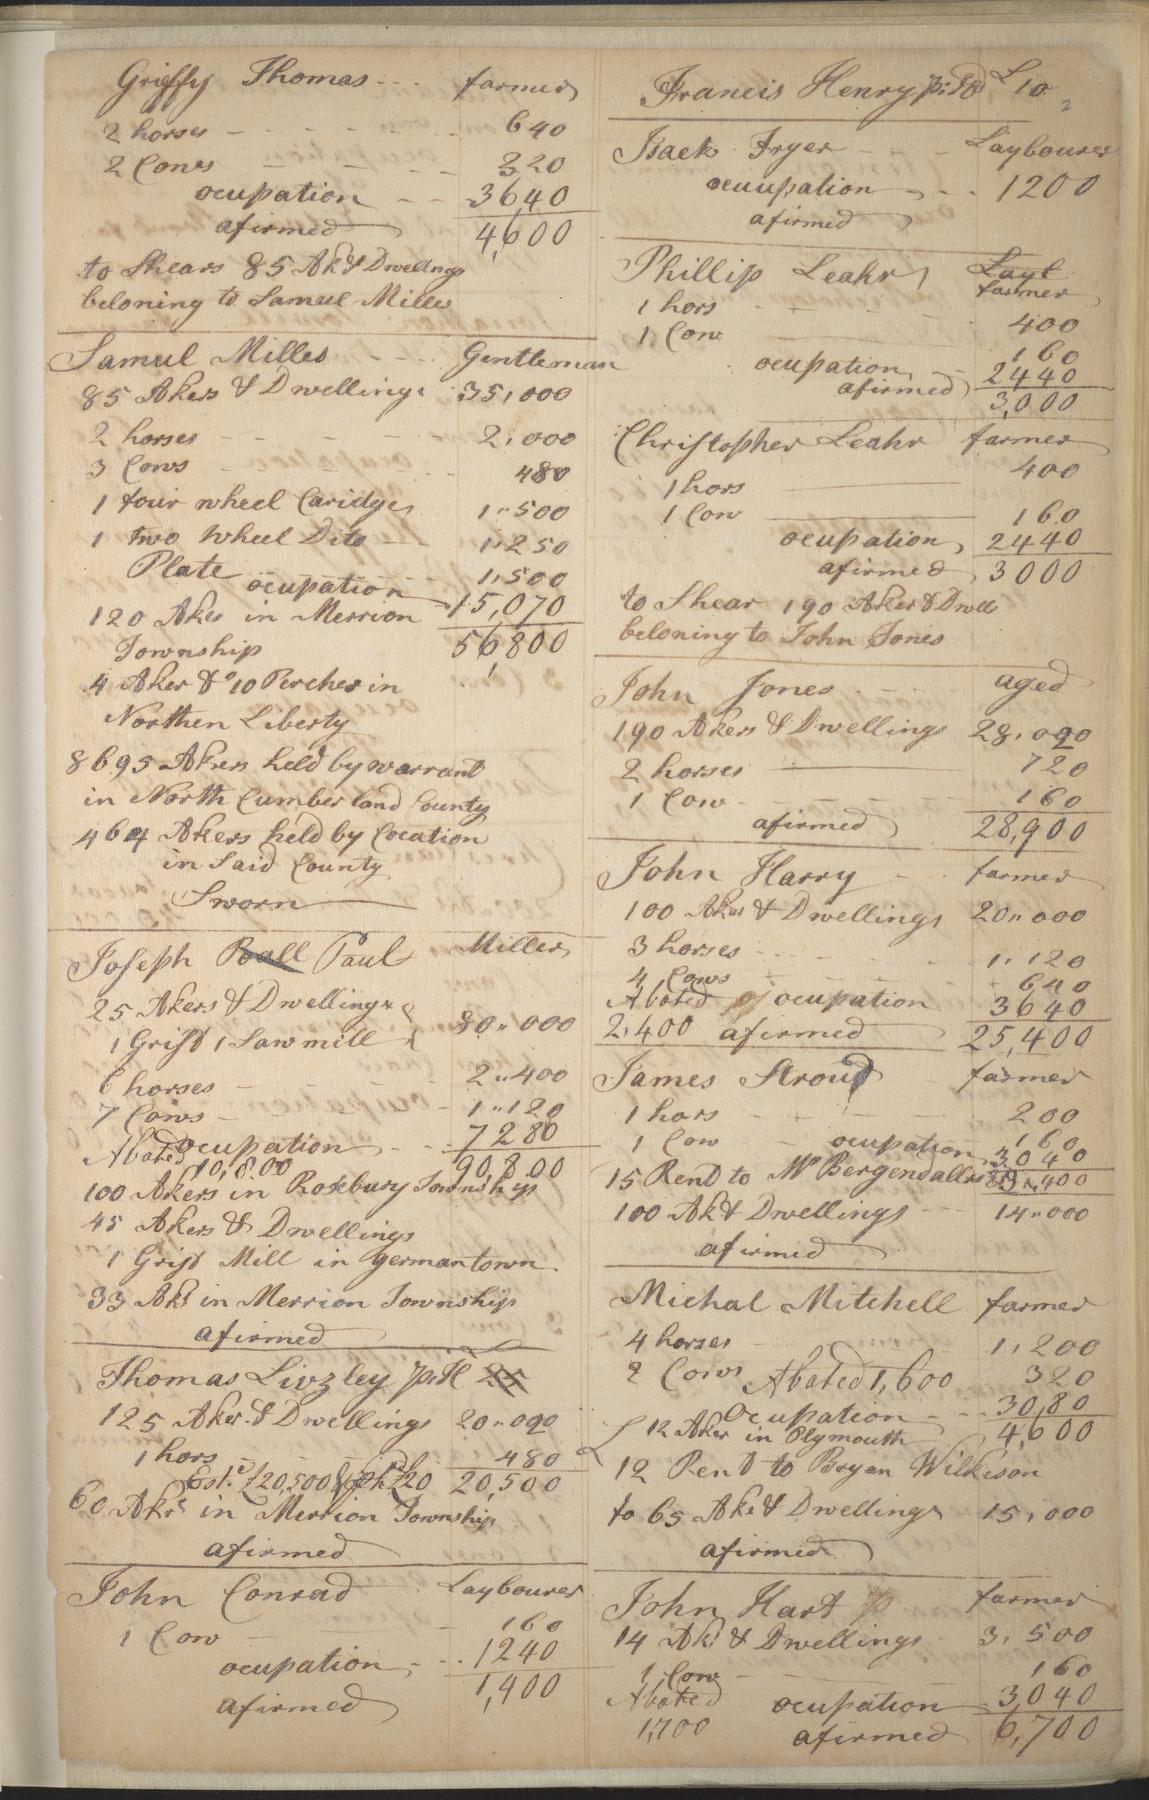 Griffy Thomas --- farmer
2 horses - - - - - - 640
2 Cows - - - - 320
ocupation - - 3640
afirmed 4,600
to Shears 85 Ak & Dwellngs
beloning to Samul Milles
Samul Milles - - - - Gentleman
85 Akers & Dwellings 35,000
2 horses - - - - - 2,000
3 Cows - - - - 480
1 four wheel Caridges 1"500
1 two Wheel Dito -- 1,250
Plate - - - 1,500
ocupation 15,070
120 Akes in Merrion 56,800
Township
4 Aker & 10 Perches in
Northen Liberty
8695 Akers held by warrant
in North Cumberland County
464 Akers held by Location
in Said County
Sworn
Joseph Ball Paul Miller
25 Akers & Dwellings
1 Grist 1 Saw mill 80"000
6 horses - - - - 2"400
7 Cows - - - - 1"120
ocupation - - 7280
Abated 10,800 90,800
100 Akers in Roxbury Township
45 Akers & Dwellings
1 Grist Mill in germantown
33 Aks in Merrion Township
afirmed
Thomas Livzley p: H 25
125 Aker & Dwellings 20"000
1 hors - 480
Est: £20,500 £20 20,500
60 Akrs in Merrion Township
afirmed
John Conrad Laybourer
1 Cow - - - - 160
ocupation - - 1240
afirmed 1,400
Francis Henry p: £10
Isaek Fryer - - - Laybourer
ocuupation - - - 1200
afirmed
Phillip Leahr Layt
farmer
1 hors - - - - 400
1 Cow 160
ocupation 2440
afirmed 3,000
Christopher Leahr farmer
1 hors 400
1 Cow 160
ocupation 2440
afirmed 3000
to Shear 190 Aker & Dwell
beloning to John Jones
John Jones - - - aged
190 Akers & Dwellings 28,020
2 horses 720
1 Cow - - - - 160
afirmed 28,900
John Harry - - farmer
100 Akes & Dwellings 20"000
3 horses - - - - 1,120
4 Cows - - - - 640
Abated ocupation 3640
2,400 afirmed 25,400
James Stroud farmer
1 hors - - - - 200
1 Cow - 160
ocupation 3040
15 Rent to Mr Bergendallrs 3,400
100 Ak & Dwellings - - 14"000
afirmid
Michal Mitchell farmer
4 horses - - - - 1,200
2 Cows Abated 1,600 320
Ocupation - - - 3080
12 Aker in Plymouth 4,600
12 Rent to Bryan Wilkeson
to 65 Ake & Dwellings 15,000
afirmed
John Hart p farmer
14 Aks & Dwellings - 3,500
1 Cow - - - 160
Abated ocupation 3,040
1,700 afirmed 6,700